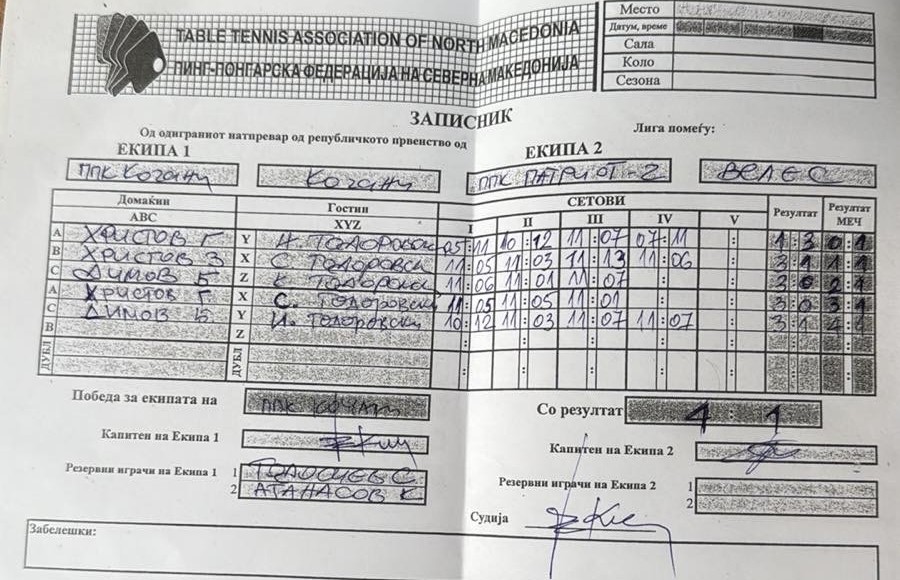 TABLE TENNIS ASSOCIATION OF NORTH MACEDONIA
ПИНГ-ПОНГАРСКА ФЕДЕРАЦИЈА НА СЕВЕРНА МАКЕДОНИЈА
Место
Датум, време
Сала
Коло
Сезона
ЗАПИСНИК
Од одиграниот натпревар од републичкото првенство од
Лига помеѓу:
ЕКИПА 1 ЕКИПА 2
ППК Кочани Кочани ППК ПАТРИОТ-2 ВЕЛЕС
Домаќин Гостин СЕТОВИ Резултат Резултат МЕЧ
ABC XYZ I II III IV V
A ХРИСТОВ Г Y Н. ТОДОРОВСКИ 05:11 10:12 11:07 07:11 : 1:3 0:1
B ХРИСТОВ З X С ТОДОРОВСКИ 11:05 11:03 11:13 11:06 : 3:1 1:1
C ДИМОВ Б Z К ТОДОРОВСКИ 11:06 11:01 11:07 : 3:0 2:1
A ХРИСТОВ Г X С. ТОДОРОВСКИ 11:05 11:05 11:01 : 3:0 3:1
C ДИМОВ Б Y Н. ТОДОРОВСКИ 10:12 11:03 11:07 11:07 : 3:1 4:1
B Z
ДУБЛ ДУБЛ
Победа за екипата на ППК КОЧАНИ Со резултат 4:1
Капитен на Екипа 1 Капитен на Екипа 2
Резервни играчи на Екипа 1 1 С Резервни играчи на Екипа 2 1
2 АТАНАСОВ К 2
Судија
Забелешки: